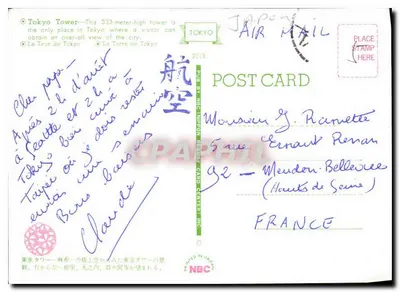 Tokyo Tower—This 333 meter-high tower is
the only place in Tokyo where a visitor can
obtain an overall view of the city.
La Tour de Tokyo La Torre en Tokyo
TOKYO
JAPON
AIR MAIL
PLACE
STAMP
HERE
航空
POST CARD
Cher papa -
Après 2h d'arrêt
à Seattle et 2h à
Tokyo bien arrivé à
Taipei où je dois rester
environ une semaine
Bons baisers
Claude
Monsieur G. Ramette
5 rue Ernest Renan
92 - Meudon-Bellevue
(Hauts de Seine)
FRANCE
NBC